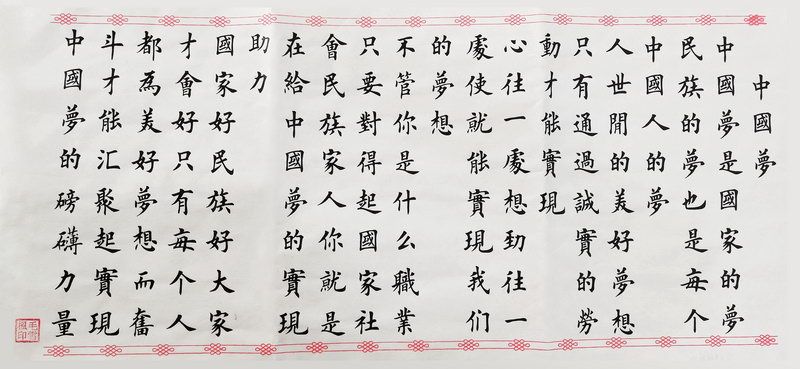 中國夢
中國夢是國家的夢
民族的夢也是每个
中國人的夢
人世閒的美好夢想
只有通過誠實的勞
動才能實現
心往一處想劲往一
處使就能實現我们
的夢想
不管你是什么職業
只要對得起國家社
會民族家人你就是
在給中國夢的實現
助力
國家好民族好大家
才會好只有每个人
都為美好夢想而奮
斗才能汇聚起實現
中國夢的磅礴力量